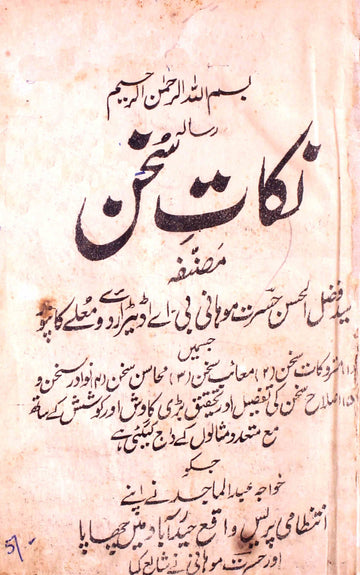 بسم اللہ الرحمٰن الرحیم
رسالہ
نکاتِ سُخن
مصنّفہ
سید فضل الحسن حسرت موہانی بی۔اے اڈیٹر اردوے معلےٰ کانپور
جسمیں
(۱) متروکات سخن (۲) معائب سخن (۳) محاسن سخن (۴) نوادر سخن و
(۵) اصلاح سخن کی تفصیل اور تحقیق بڑی کاوش اور کوشش کے ساتھ
مع متعدد مثالوں کے درج کیگئی ہے
جسکو
خواجہ عبدالماجد نے اپنے
انتظامی پریس واقع حیدرآباد میں چھاپا
اور حسرت موہانی نے شائع کیا